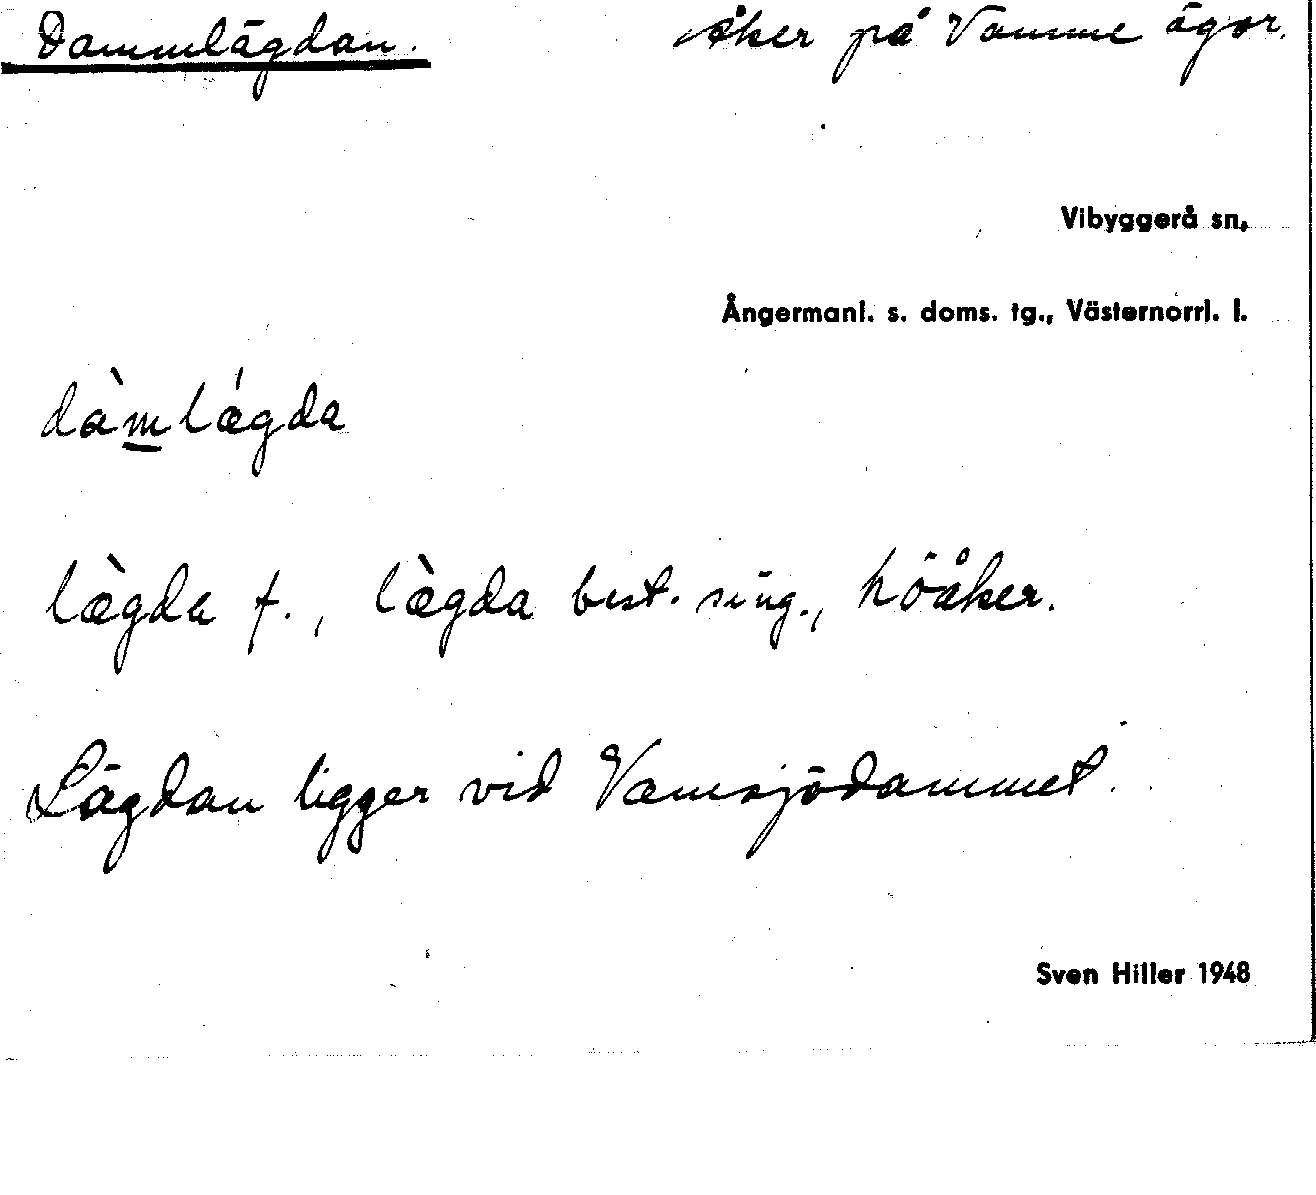 Dammlägdan. Åker på Vamme ägor.
Vibyggerå sn,
Ångermanl. s. doms. tg., Västernorrl. l.
dàmlǽgda
læ̀gda f., læ̀gda best. sing., höåker.
Lägdan ligger vid Vamsjödammet.
Sven Hiller 1948